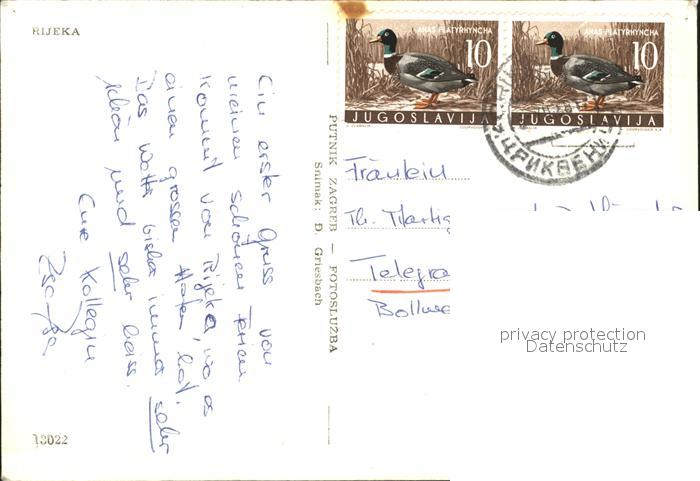 RIJEKA
Ein erster Gruss von
meinen schönen Ferien
kommt von Rijeka, wo es
einen grossen Hafen hat.
Das Wetter bisher immer sehr
schön und sehr heiss.
Eure Kollegin
13022
PUTNIK ZAGREB — FOTOSLUŽBA
Snimak: Đ. Griesbach
ANAS PLATYRHYNCHA
10
JUGOSLAVIJA
ANAS PLATYRHYNCHA
10
JUGOSLAVIJA
ЦРИКВЕНИ
Fräulein
Th.
Telegra
Bollwe
privacy protection
Datenschutz